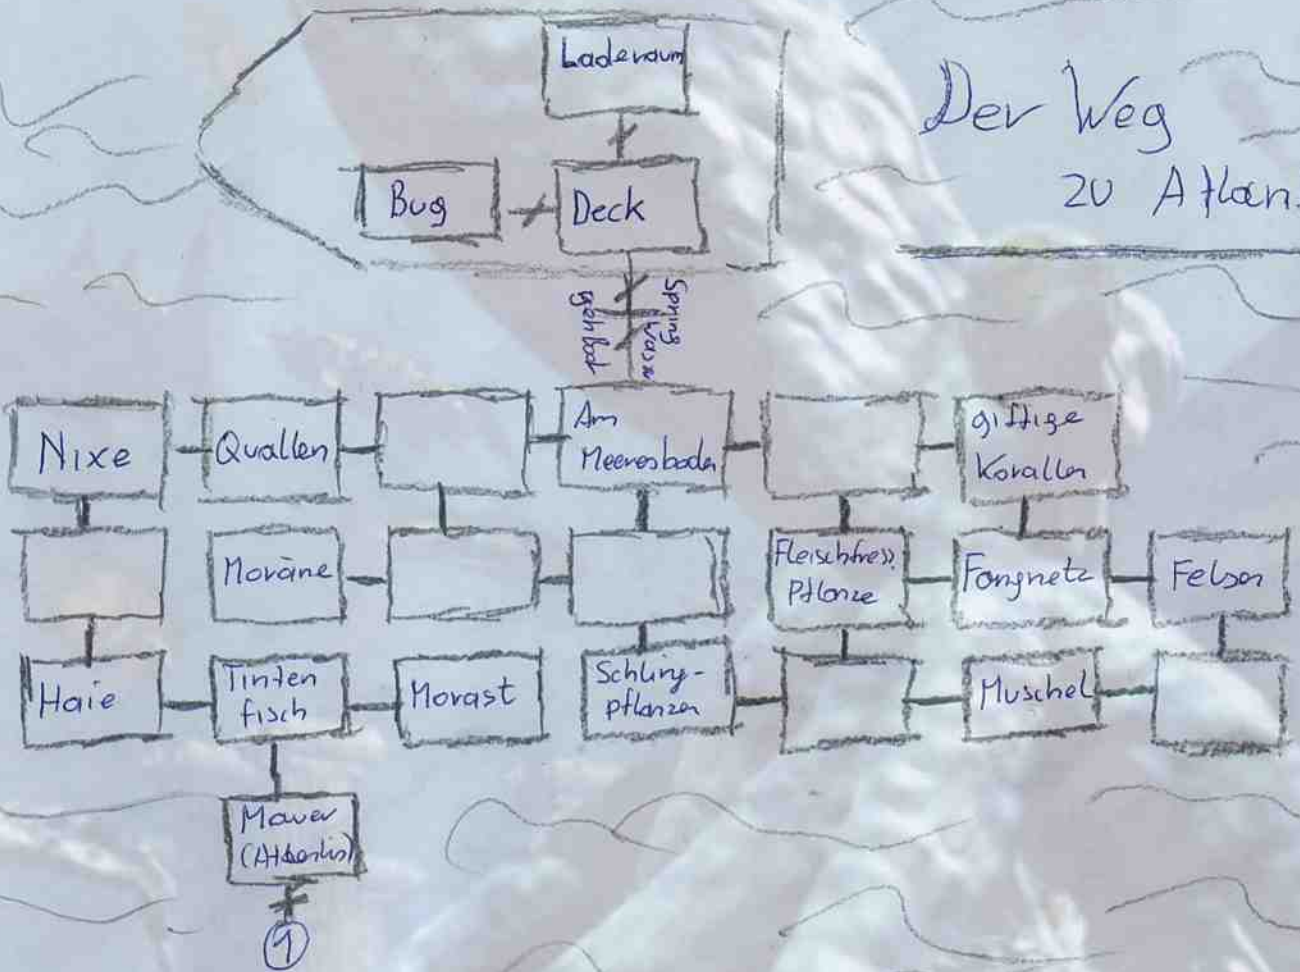 Laderaum
Der Weg
zu Atlan
Bug
Deck
Spring
Wasse
geh Boot
Nixe
Quallen
Am
Meeresboden
giftige
Korallen
Moräne
Fleischfress.
Pflanze
Fangnetz
Felsen
Haie
Tinten
fisch
Morast
Schling-
pflanzen
Muschel
Mauer
(Atlantis)
1